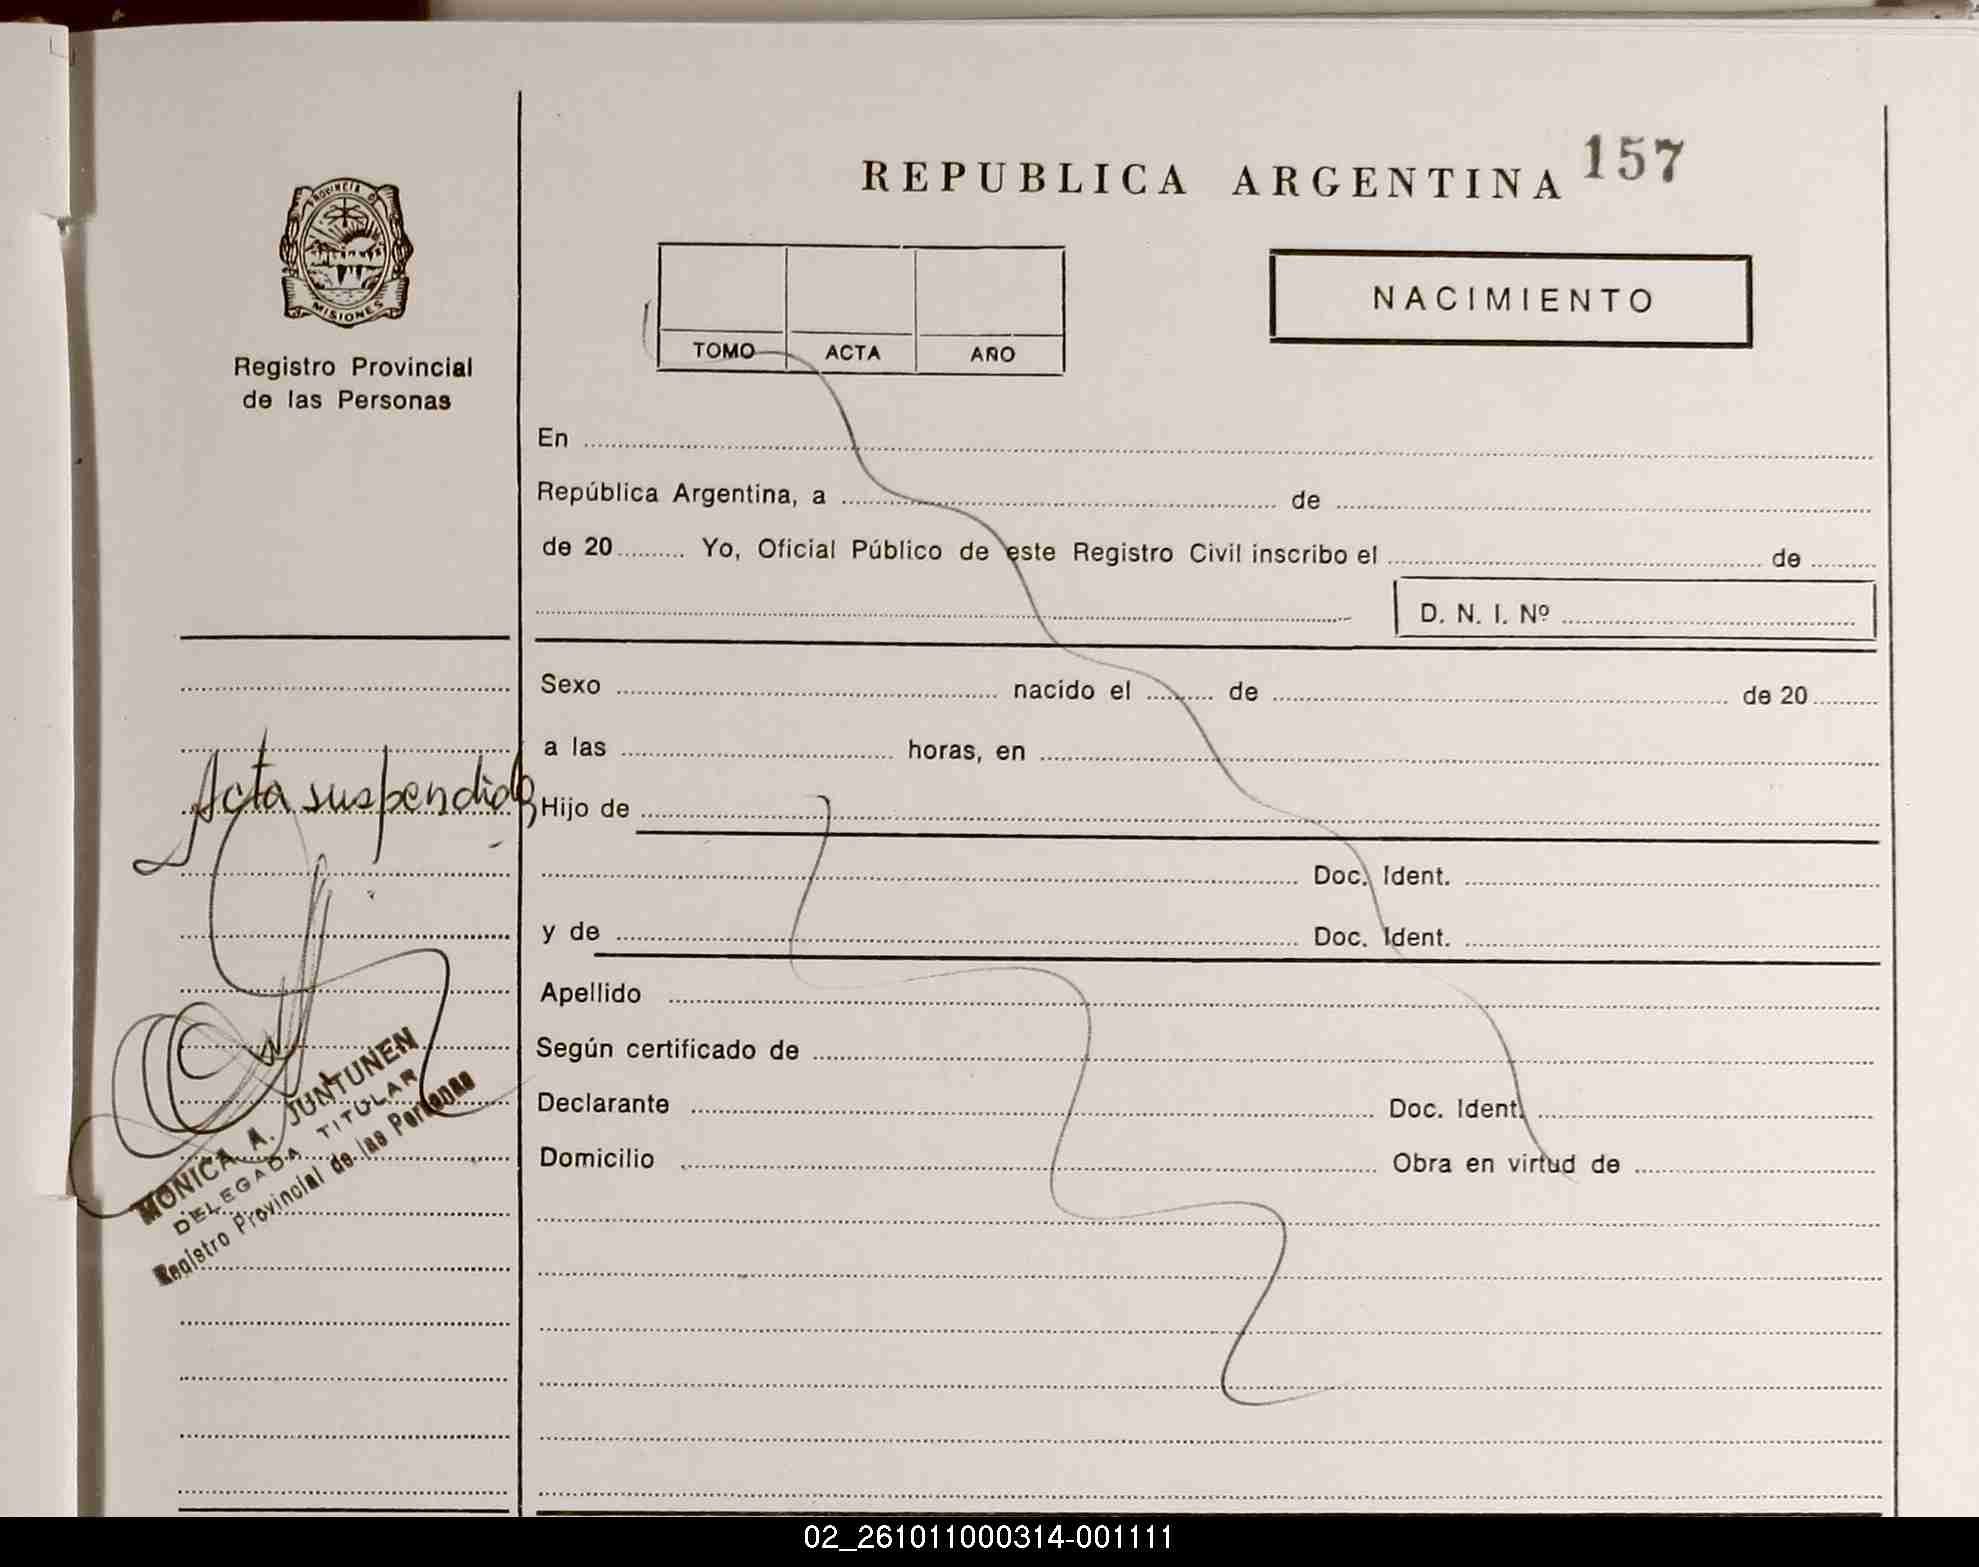 REPUBLICA ARGENTINA 157
PROVINCIA DE
MISIONES
Registro Provincial
de las Personas
TOMO ACTA AÑO
NACIMIENTO
En
República Argentina, a de
de 20 Yo, Oficial Público de este Registro Civil inscribo el de
D. N. I. Nº
Sexo nacido el de de 20
a las horas, en
Acta suspendida
Hijo de
Doc. Ident.
y de Doc. Ident.
Apellido
Según certificado de
Declarante Doc. Ident.
Domicilio Obra en virtud de
MONICA A. JUNTUNEN
DELEGADA TITULAR
Registro Provincial de las Personas
02_261011000314-001111